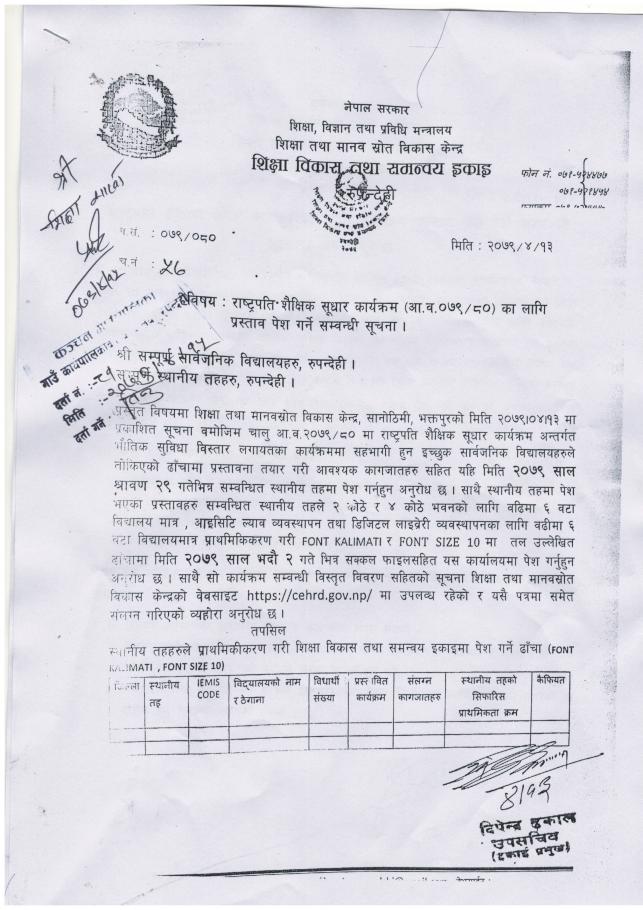 नेपाल सरकार
शिक्षा, विज्ञान तथा प्रविधि मन्त्रालय
शिक्षा तथा मानव स्रोत विकास केन्द्र
शिक्षा विकास तथा समन्वय इकाइ
रुपन्देही
फोन नं. ०७१-५२४४७७
०७१-५२१५५४
श्री
शिक्षा शाखा
प.सं. : ०७९/०८०
मिति : २०७९/४/१३
च.नं : ५८
विषय : राष्ट्रपति शैक्षिक सूधार कार्यक्रम (आ.व.०७९/८०) का लागि
प्रस्ताव पेश गर्ने सम्वन्धी सूचना ।
दर्ता नं.
मिति
श्री सम्पूर्ण सार्वजनिक विद्यालयहरु, रुपन्देही ।
स्थानीय तहहरु, रुपन्देही ।
प्रस्तुत विषयमा शिक्षा तथा मानवस्रोत विकास केन्द्र, सानोठिमी, भक्तपुरको मिति २०७९।०४।१३ मा
प्रकाशित सूचना वमोजिम चालु आ.व.२०७९/८० मा राष्ट्रपति शैक्षिक सूधार कार्यक्रम अन्तर्गत
भौतिक सुविधा विस्तार लगायतका कार्यक्रममा सहभागी हुन इच्छुक सार्वजनिक विद्यालयहरुले
तोकिएको ढाँचामा प्रस्तावना तयार गरी आवश्यक कागजातहरु सहित यहि मिति २०७९ साल
श्रावण २९ गतेभित्र सम्वन्धित स्थानीय तहमा पेश गर्नुहुन अनुरोध छ । साथै स्थानीय तहमा पेश
भएका प्रस्तावहरु सम्वन्धित स्थानीय तहले २ कोठे र ४ कोठे भवनको लागि वढिमा ६ वटा
विद्यालय मात्र , आइसिटि ल्याव व्यवस्थापन तथा डिजिटल लाइव्रेरी व्यवस्थापनका लागि वढीमा ६
वटा विद्यालयमात्र प्राथमिकिकरण गरी FONT KALIMATI र FONT SIZE 10 मा तल उल्लेखित
ढाँचामा मिति २०७९ साल भदौ २ गते भित्र सक्कल फाइलसहित यस कार्यालयमा पेश गर्नुहुन
अनुरोध छ । साथै सो कार्यक्रम सम्वन्धी विस्तृत विवरण सहितको सूचना शिक्षा तथा मानवस्रोत
विकास केन्द्रको वेवसाइट https://cehrd.gov.np/ मा उपलव्ध रहेको र यसै पत्रमा समेत
संलग्न गरिएको व्यहोरा अनुरोध छ ।
तपसिल
स्थानीय तहहरुले प्राथमिकीकरण गरी शिक्षा विकास तथा समन्वय इकाइमा पेश गर्ने ढाँचा (FONT
KALIMATI , FONT SIZE 10)
जिल्ला स्थानीय तह IEMIS CODE विद्यालयको नाम र ठेगाना विधार्थी संख्या प्रस्तावित कार्यक्रम संलग्न कागजातहरु स्थानीय तहको सिफारिस प्राथमिकता क्रम कैफियत
४/१३
दिपेन्द्र ढुकाल
उपसचिव
(इकाई प्रमुख)